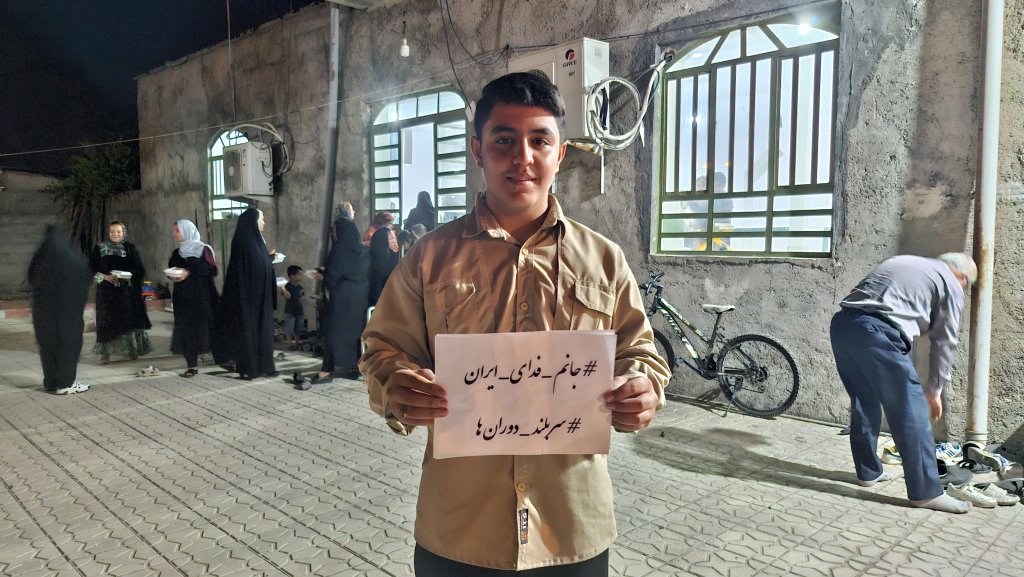 GREE
#جانم_فدای_ایران
#سربلند_دوران‌ها